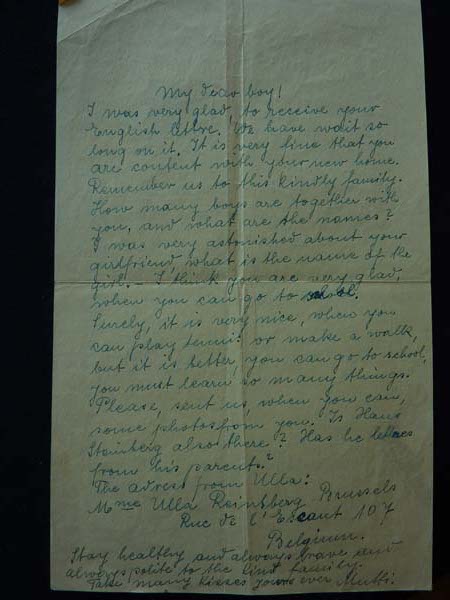 My dear boy!
I was very glad, to receive your
English lettre. We have wait so
long on it. It is very fine that you
are content with your new home.
Remember us to this kindly family.
How many boys are together with
you, and what are the names?
I was very astonished about your
girlfriend, what is the name of the
girl. - I think you are very glad,
when you can go to school.
Surely, it is very nice, when you
can play tennis or make a walk,
but it is better, you can go to school,
you must learn so many things.
Please, sent us, when you can,
some photos from you. Is Hans
Steinberg also there? Has he lettres
from his parents?
The adress from Ulla:
Mme Ulla Reinsberg Brussels
Rue de l'Escaut 107
Belgium.
Stay healthy and always brave and
always polite to the kind family.
Take many kisses yours ever Mutti.